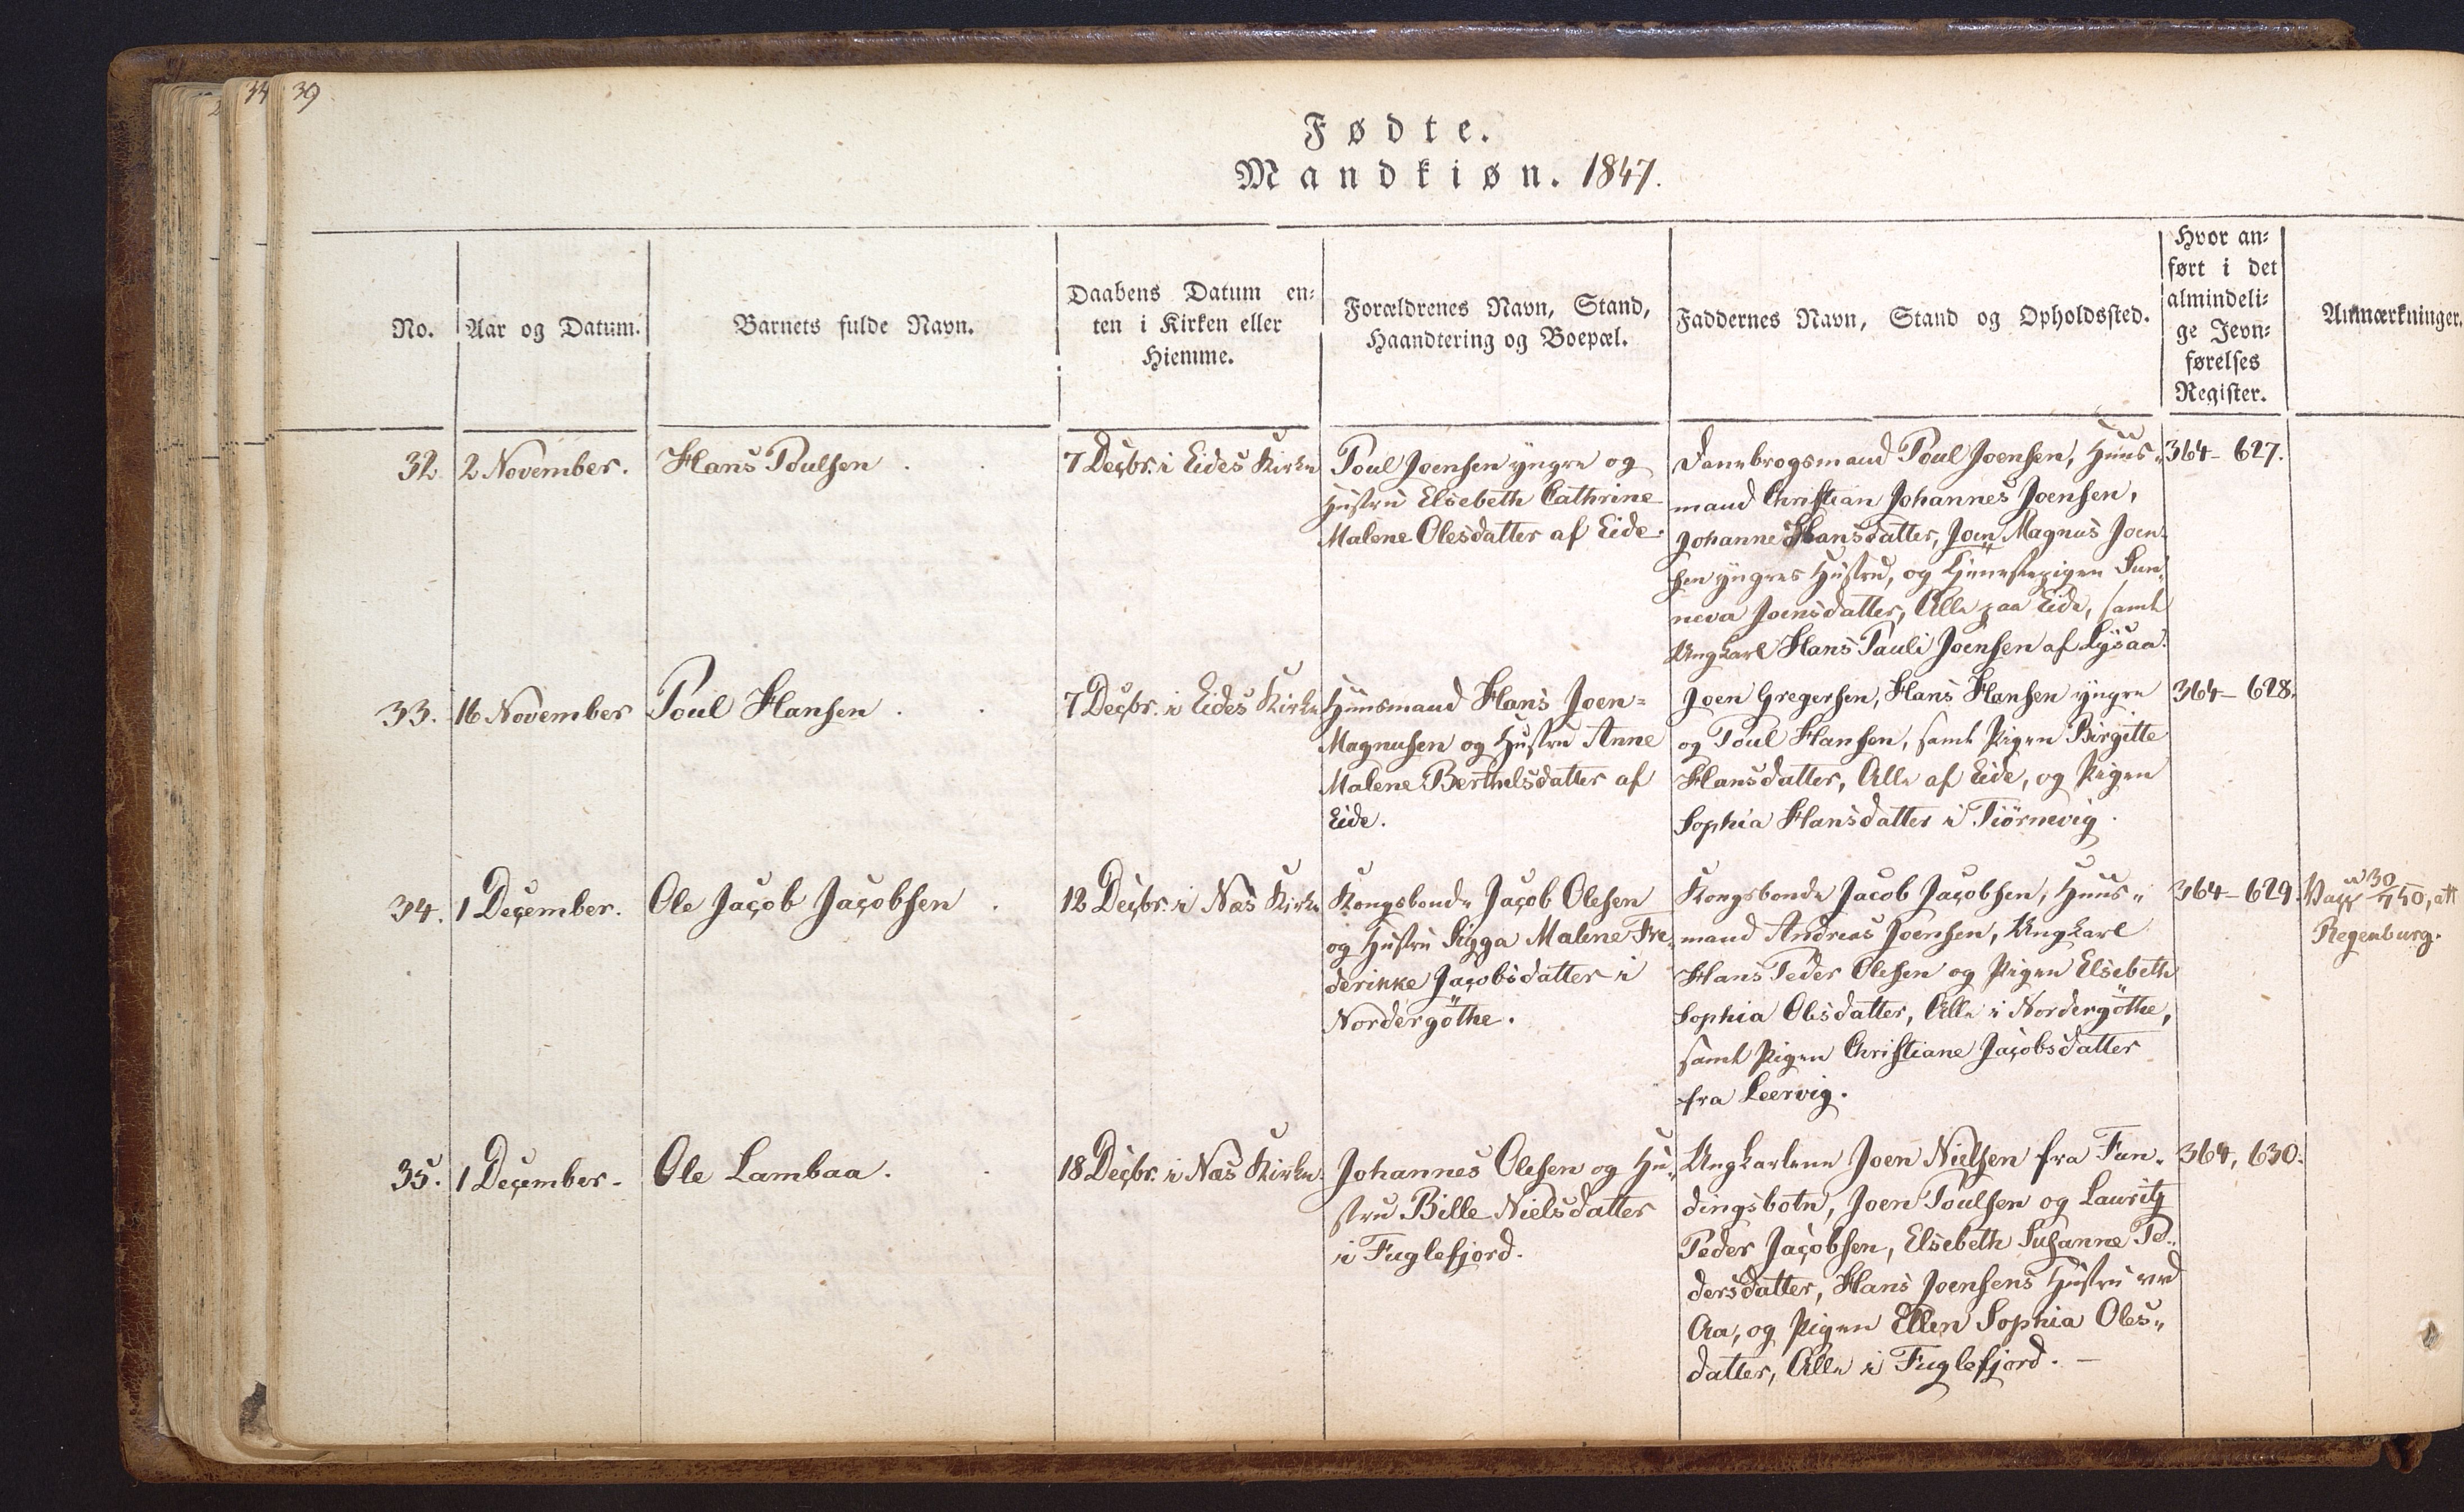 39
34
Fødte.
Mandkiøn. 1847.
No.
Aar og Datum.
Barnets fulde Navn.
Daabens Datum en-
ten i Kirken eller
Hiemme.
Forældrenes Navn, Stand,
Haandtering og Boepæl.
Faddernes Navn, Stand og Opholdssted.
Hvor an-
ført i det
almindeli-
ge Jevn-
førelses
Register.
Anmærkninger.
32.
2 November.
Hans Poulsen
7 Decbr. i Eides Kirke
Poul Joensen yngre og
Hustru Elsebeth Cathrine
Malene Olesdatter af Eide.
Danebrogsmand Poul Joensen, Huus-
mand Christian Johannes Joensen,
Johanne Hansdatter, Joen Magnus Joen-
sen yngres Hustru, og Tjenestepigen Sun-
neva Joensdatter, Alle paa Eide, samt
Ungkarl Hans Pauli Joensen af Lysaa.
364-627.
33.
16 November
Poul Hansen
7 Decbr. i Eides Kirke
Huusmand Hans Joen-
Magnusen og Hustru Anne
Malene Berthelsdatter af
Eide.
Joen Gregersen, Hans Hansen yngre
og Poul Hansen, samt Pigen Birgitte
Hansdatter, Alle af Eide, og Pigen
Sophia Hansdatter i Tiörnevig.
364-628.
34.
1 December.
Ole Jacob Jacobsen
12 Decbr. i Næs Kirke
Kongsbonde Jacob Olesen
og Hustru Sigga Malene Fre-
derikke Jacobsdatter i
Nordergöthe.
Kongsbonde Jacob Jacobsen, Huus-
mand Andreas Joensen, Ungkarl
Hans Peder Olesen og Pigen Elsebeth
Sophia Olesdatter, Alle i Nordergöthe,
samt Pigen Christiane Jacobsdatter
fra Leervig.
364-629.
Vacc. d 30/7 50, att
Regenburg.
35.
1 December.
Ole Lambaa.
18 Decbr. i Næs Kirke.
Johannes Olesen og Hu-
stru Bille Nielsdatter
i Fuglefjord.
Ungkarlene Joen Nielsen fra Fun-
dingsbotn, Joen Poulsen og Lauritz
Peder Jacobsen, Elsebeth Susanne Pe-
dersdatter, Hans Joensens Hustru ved
Aa, og Pigen Ellen Sophia Oles-
datter, Alle i Fuglefjord. -
364, 630.